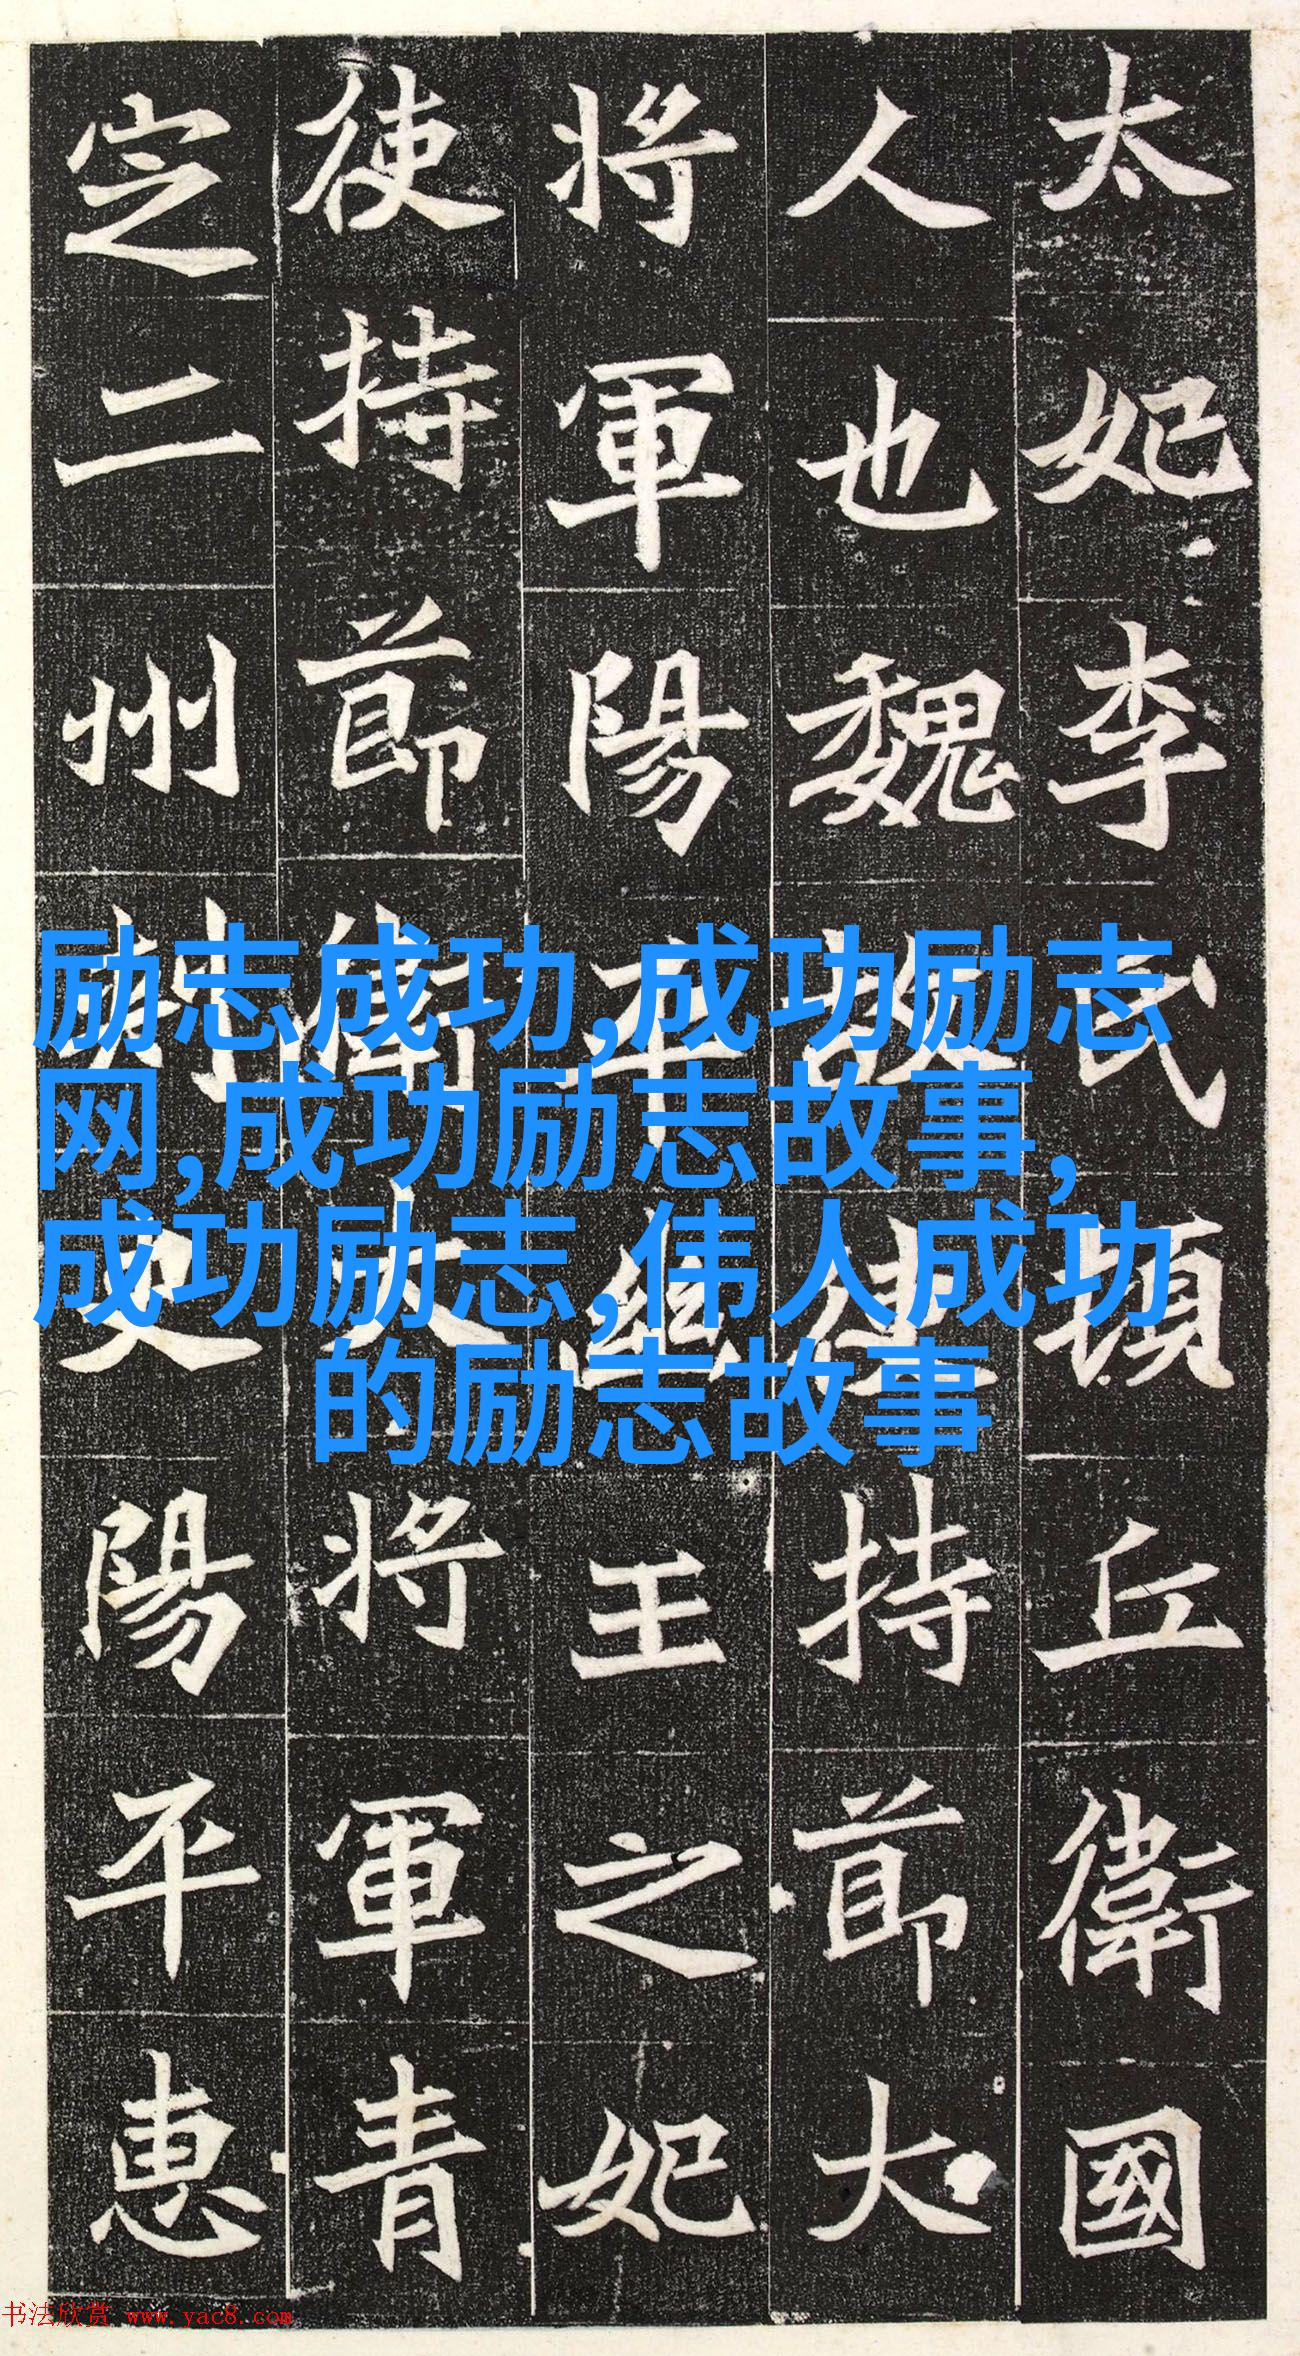 太妃李氏頓丘衛國
人也魏故使持節大
將軍陽平幽王之妃
使持節衛大將軍青
定二州刺史陽平惠
励志成功,成功励志
网,成功励志故事,
成功励志,伟人成功
的励志故事
书法欣赏 www.yac8.com